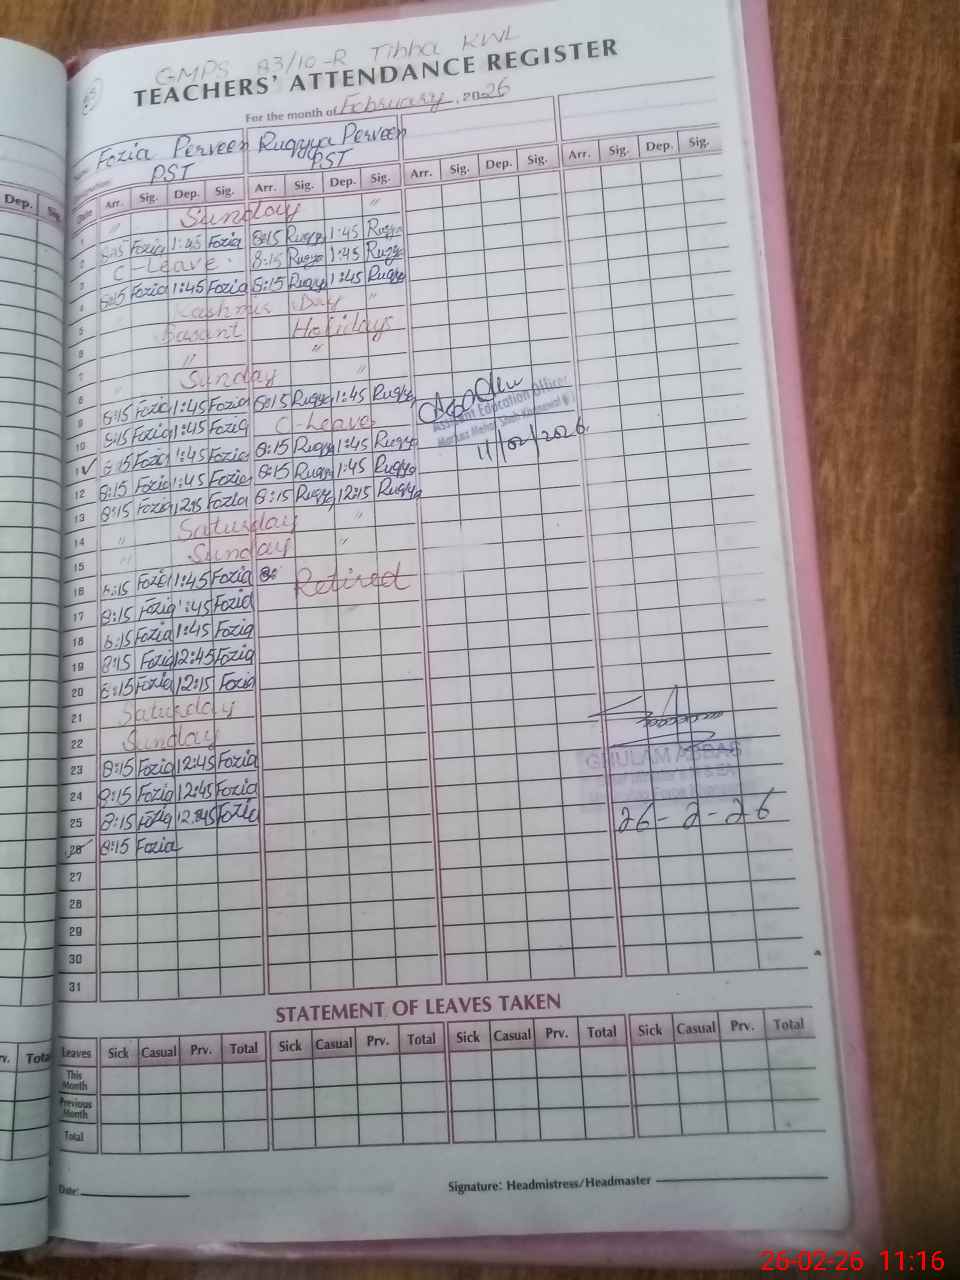 GMPS 83/10-R Tibba KWL
TEACHERS' ATTENDANCE REGISTER
For the month of February, 2026
Name Fozia Perveen Ruqyya Perveen
PST PST
Date Arr. Sig. Dep. Sig. Arr. Sig. Dep. Sig. Arr. Sig. Dep. Sig. Arr. Sig. Dep. Sig.
1 " Sunday "
2 8:15 Fozia 1:45 Fozia 8:15 Ruqyya 1:45 Ruqyya
3 C-Leave 8:15 Ruqyya 1:45 Ruqyya
4 8:15 Fozia 1:45 Fozia 8:15 Ruqyya 1:45 Ruqyya
5 " Kashmir Day "
6 Basant Holidays
7 " "
8 " Sunday "
9 8:15 Fozia 1:45 Fozia 8:15 Ruqyya 1:45 Ruqyya
10 8:15 Fozia 1:45 Fozia C-Leave
11 8:15 Fozia 1:45 Fozia 8:15 Ruqyya 1:45 Ruqyya
12 8:15 Fozia 1:45 Fozia 8:15 Ruqyya 1:45 Ruqyya
13 8:15 Fozia 12:15 Fozia 8:15 Ruqyya 12:15 Ruqyya
14 " Saturday "
15 " Sunday "
16 8:15 Fozia 1:45 Fozia 8: Retired
17 8:15 Fozia 1:45 Fozia
18 8:15 Fozia 1:45 Fozia
19 8:15 Fozia 12:45 Fozia
20 8:15 Fozia 12:15 Fozia
21 Saturday
22 Sunday
23 8:15 Fozia 12:45 Fozia
24 8:15 Fozia 12:45 Fozia
25 8:15 Fozia 12:45 Fozia
26 8:15 Fozia
27
28
29
30
31
Assistant Education Officer
11/02/2026
GHULAM ABBAS
26-2-26
STATEMENT OF LEAVES TAKEN
Leaves Sick Casual Prv. Total Sick Casual Prv. Total Sick Casual Prv. Total Sick Casual Prv. Total
This Month
Previous Month
Total
Date:
Signature: Headmistress/Headmaster
Dep.
Total
26-02-26 11:16